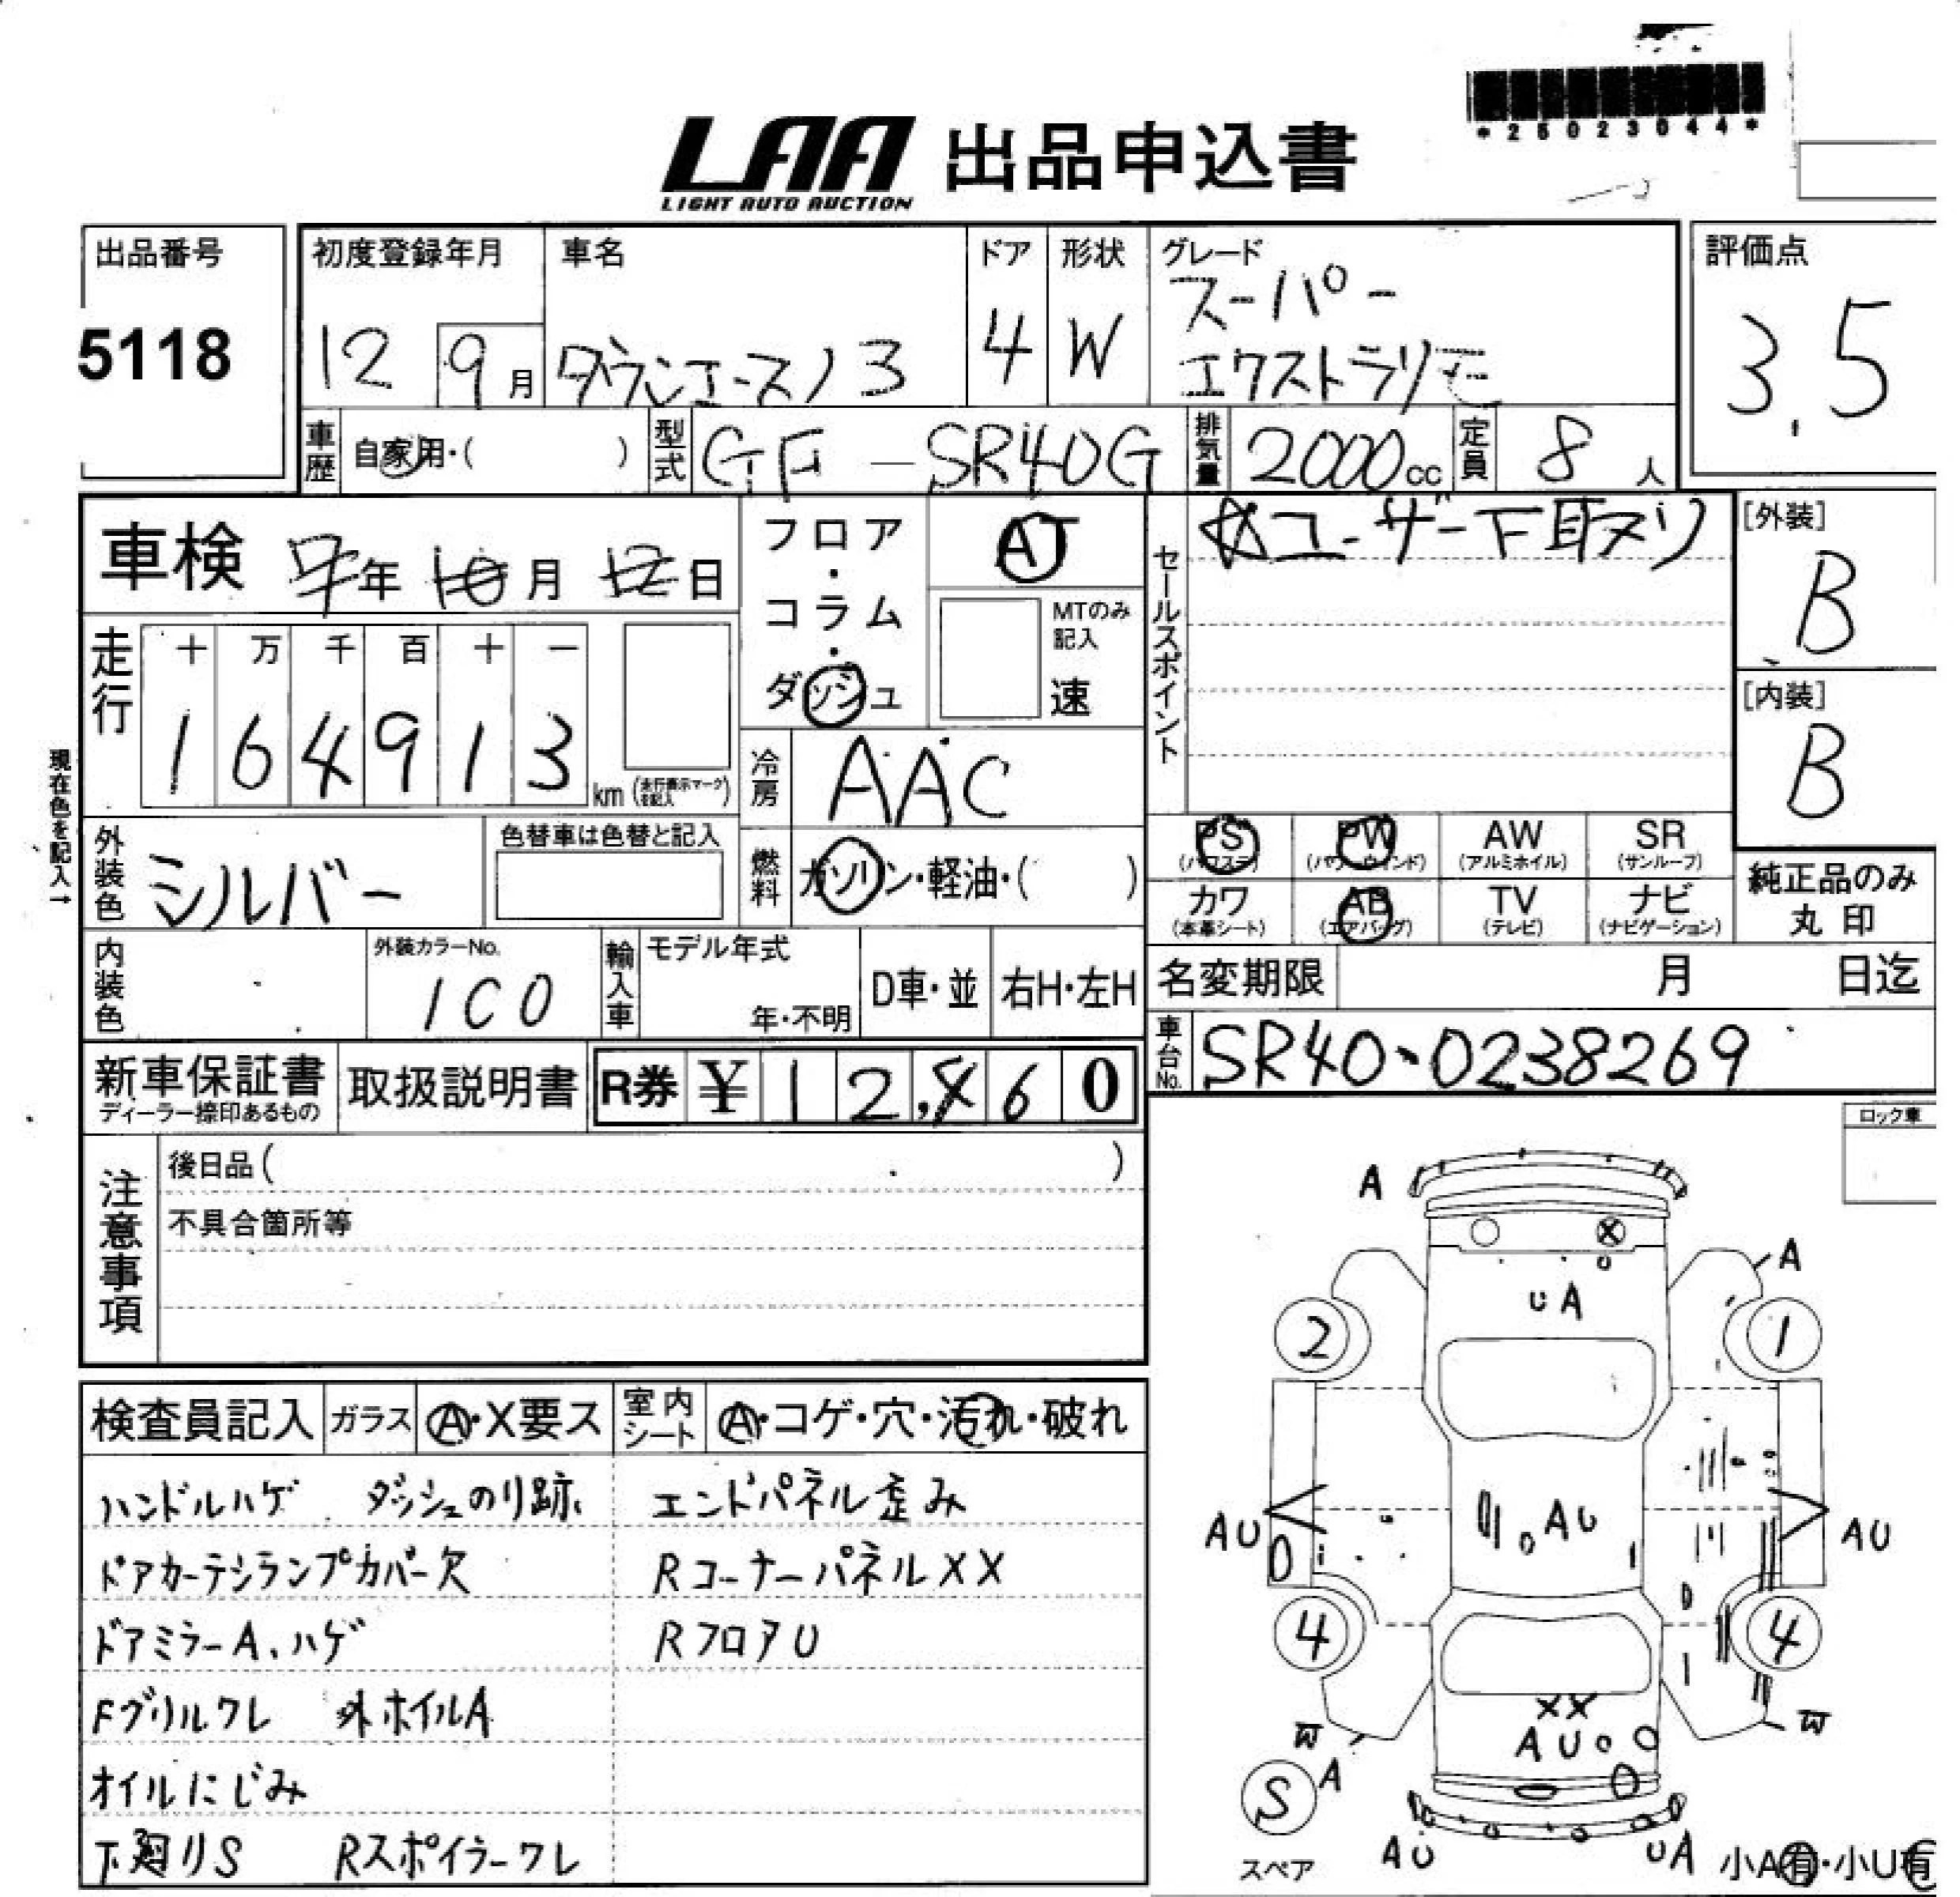 *25023044*
LAA 出品申込書
LIGHT AUTO AUCTION
出品番号
5118
初度登録年月
12 9月
車名
タウンエースノ3
ドア
4
形状
W
グレード
スーパー
エクストラリモ
評価点
3.5
車歴 自家用・( )
型式 GF-SR40G
排気量 2000cc
定員 8人
車検 7年 10月 12日
フロア・コラム・ダッシュ
AT
MTのみ記入
速
セールスポイント
ユーザー下取ヌリ
[外装]
B
[内装]
B
走行
十 万 千 百 十 一
1 6 4 9 1 3 km (走行表示マークを記入)
現在色を記入→
冷房 AAC
外装色 シルバー
色替車は色替と記入
燃料 ガソリン・軽油・( )
PS AW SR
PW
(パワステ) (パワーウインド) (アルミホイル) (サンルーフ)
カワ AB TV ナビ
(本革シート) (エアバッグ) (テレビ) (ナビゲーション)
純正品のみ
丸印
内装色
外装カラーNo.
1C0
輸入車
モデル年式
年・不明
D車・並
右H・左H
名変期限 月 日迄
車台No. SR40-0238269
新車保証書
ディーラー捺印あるもの
取扱説明書
R券 ¥ 1 2, 6 0
注意事項
後日品( )
不具合箇所等
ロック車
検査員記入
ガラス A・X要ス
室内シート A・コゲ・穴・汚れ・破れ
ハンドルハゲ ダッシュのり跡
エンドパネル歪み
ドアカーテシランプカバー欠
RコーナーパネルXX
ドアミラーA、ハゲ
RフロアU
Fグリルワレ 外ホイルA
オイルにじみ
下廻りS Rスポイラーワレ
A
A
U A
2
1
AU
AU
AU
4
4
XX
W
AU
W
S A
スペア
AU
UA
小A有・小U有